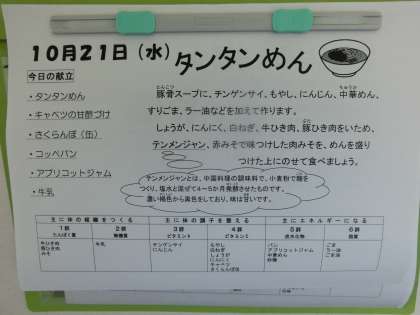 10月21日（水）タンタンめん
今日の献立
・タンタンめん
・キャベツの甘酢づけ
・さくらんぼ（缶）
・コッペパン
・アプリコットジャム
・牛乳
とんこつ ちゅうか
豚骨スープに、チンゲンサイ、もやし、にんじん、中華めん、
すりごま、ラー油などを加えて作ります。
しょうが、にんにく、白ねぎ、牛ひき肉、豚ひき肉をいため、
テンメンジャン、赤みそで味つけした肉みそを、めんを盛り
つけた上にのせて食べましょう。
テンメンジャンとは、中国料理の調味料で、小麦粉で麹を
つくり、塩水と混ぜて4～5か月発酵させたものです。
濃い褐色から黒色をしており、味は甘いです。
主に体の組織をつくる 主に体の調子を整える 主にエネルギーになる
1群 2群 3群 4群 5群 6群
たんぱく質 無機質 ビタミンA ビタミンC 炭水化物 脂質
牛ひき肉 牛乳 チンゲンサイ もやし パン ごま
豚ひき肉 にんじん 白ねぎ アプリコットジャム ラー油
みそ しょうが 中華めん ごま油
にんにく 砂糖
キャベツ
さくらんぼ缶